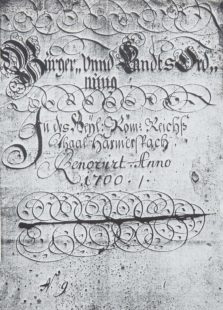 Bürger„ Vnnd Landts Ord„
nŭng
In dß Heyl: Röm: Reichß
thaal Harmerspach.
Renovirt. Anno
1700.